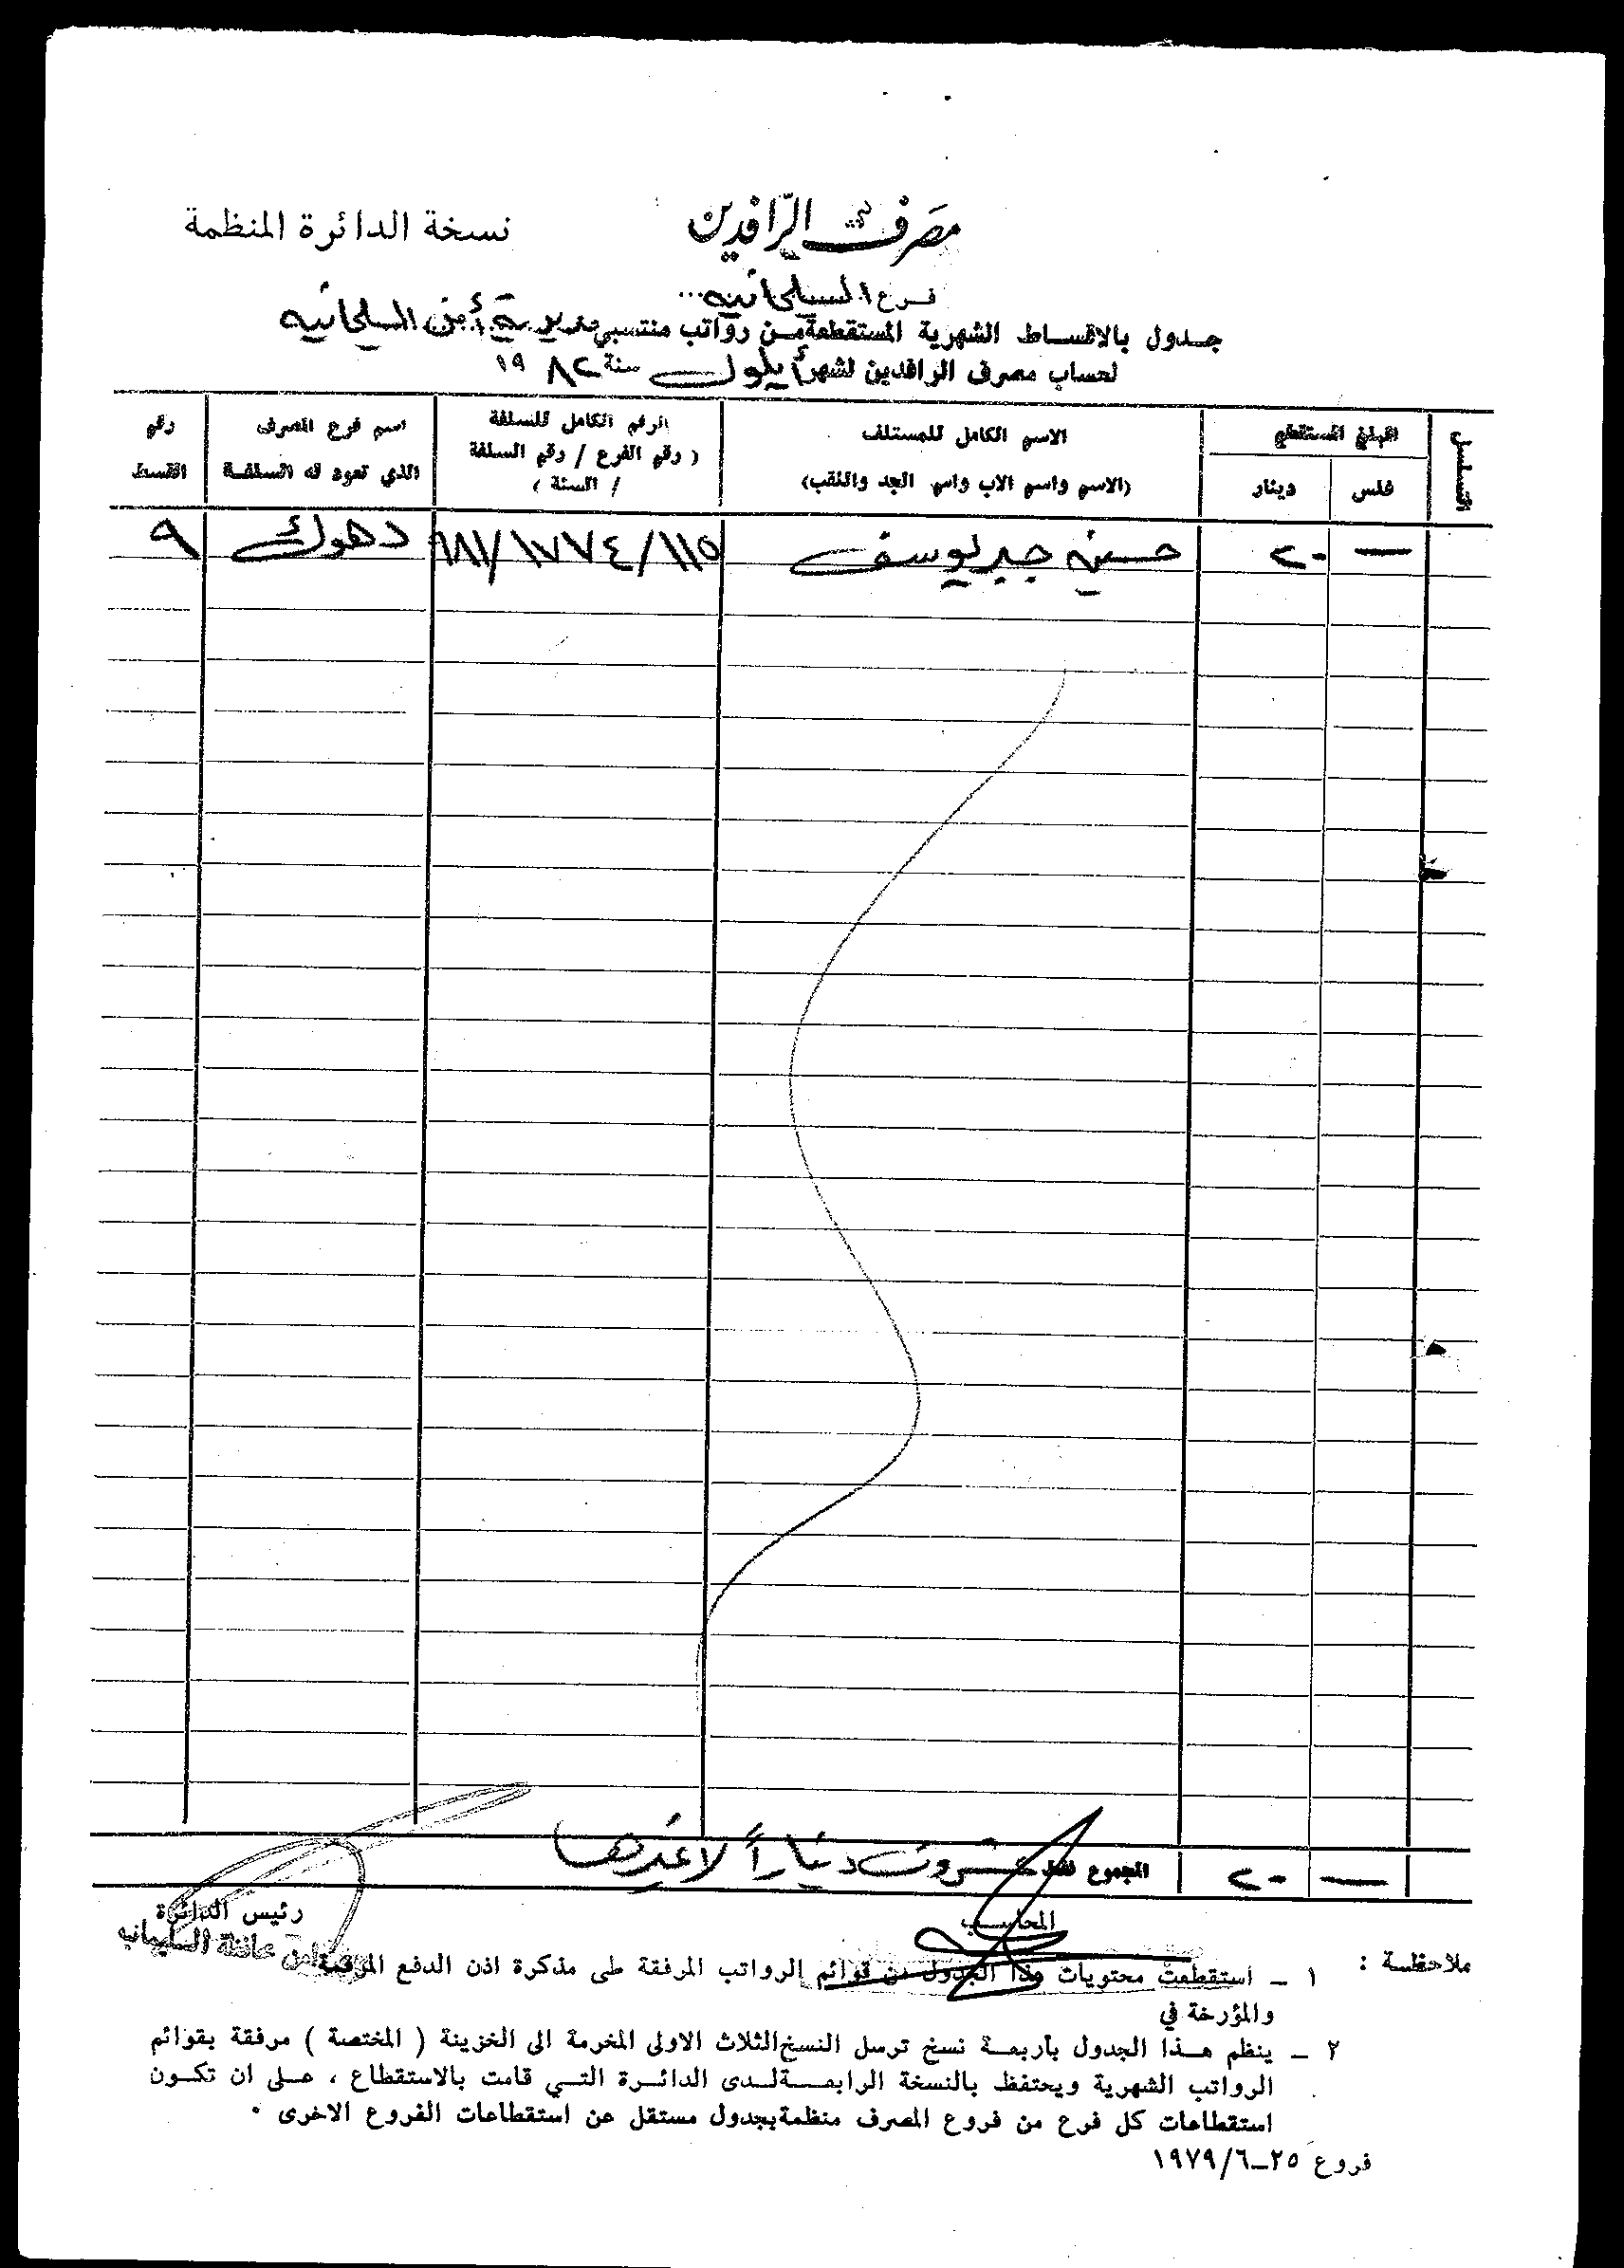 مصرف الرافدين
نسخة الدائرة المنظمة
فرع السليمانيه
جدول بالاقساط الشهرية المستقطعة من رواتب منتسبي مديرية أمن السليمانيه
لحساب مصرف الرافدين لشهر أيلول سنة ١٩٨٢
التسلسل
المبلغ المستقطع
فلس دينار
الاسم الكامل للمستلف
(الاسم واسم الاب واسم الجد واللقب)
الرقم الكامل للسلفة
( رقم الفرع / رقم السلفة
/ السنة )
اسم فرع المصرف
الذي تعود له السلفة
رقم
القسط
— ٢٠ جبر يوسف ١١٥/١٧٧٤/٩٨١ دهوك ٩
— ٢٠ المجموع فقط عشرون ديناراً لا غيرها
المحاسب
رئيس الدائرة
ملاحظة :
١ – استقطعت محتويات هذا الجدول من قوائم الرواتب المرفقة طى مذكرة اذن الدفع المرقمة
والمؤرخة في
٢ – ينظم هذا الجدول بأربعة نسخ ترسل النسخ الثلاث الاولى المخرمة الى الخزينة ( المختصة ) مرفقة بقوائم
الرواتب الشهرية ويحتفظ بالنسخة الرابعة لدى الدائرة التي قامت بالاستقطاع ، على ان تكون
استقطاعات كل فرع من فروع المصرف منظمة بجدول مستقل عن استقطاعات الفروع الاخرى ٠
فروع ٢٥–١٩٧٩/٦